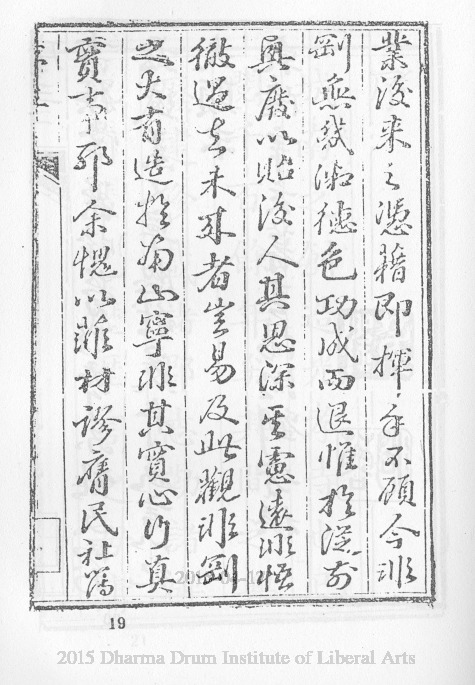 業後來之憑藉即揮手不顧今非
剛無我淑德色功成而退惟於從前
興廢以貽後人其思深其慮遠非悟
徹過去未來者豈易及此觀非剛
之大有造於南山寧非其實心行真
實事耶余愧以雖材謬膺民社篤
19
2015 Dharma Drum Institute of Liberal Arts